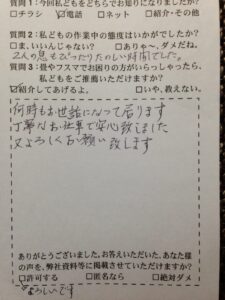 質問1：今回私どもをどちらでお知りになりましたか?
□チラシ ☑電話 □ネット □紹介・その他
質問2：私どもの作業中の態度はいかがでしたか?
□ま、いいんじゃない? □ありゃ～、ダメだね。
2人の息もぴったりたのしい時間でした。
質問3：畳やフスマでお困りの方がいらっしゃったら、
私どもをご推薦いただけますか?
☑紹介してあげるよ。 □いや、教えない。
何時もお世話になって居ります
丁寧なお仕事で安心致しました
又よろしくお願い致します
ありがとうございました。お答えいただいた、あなた様
の声を、弊社資料等に掲載させていただけますか?
□許可する □匿名なら □絶対ダメ
よろしいです